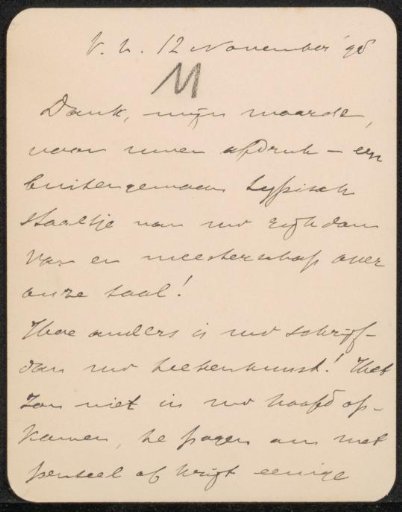 V. L. 12 November '98
M
Dank, mijn waarde,
voor uwen afdruk – een
buitengewoon typisch
staaltje van uw rijkdom
van en meesterschap over
onze taal!
Hoe anders is uw schrijf-
dan uw teekenkunst! Het
zou niet in uw hoofd op-
komen, te pogen om met
penseel of krijt eenige